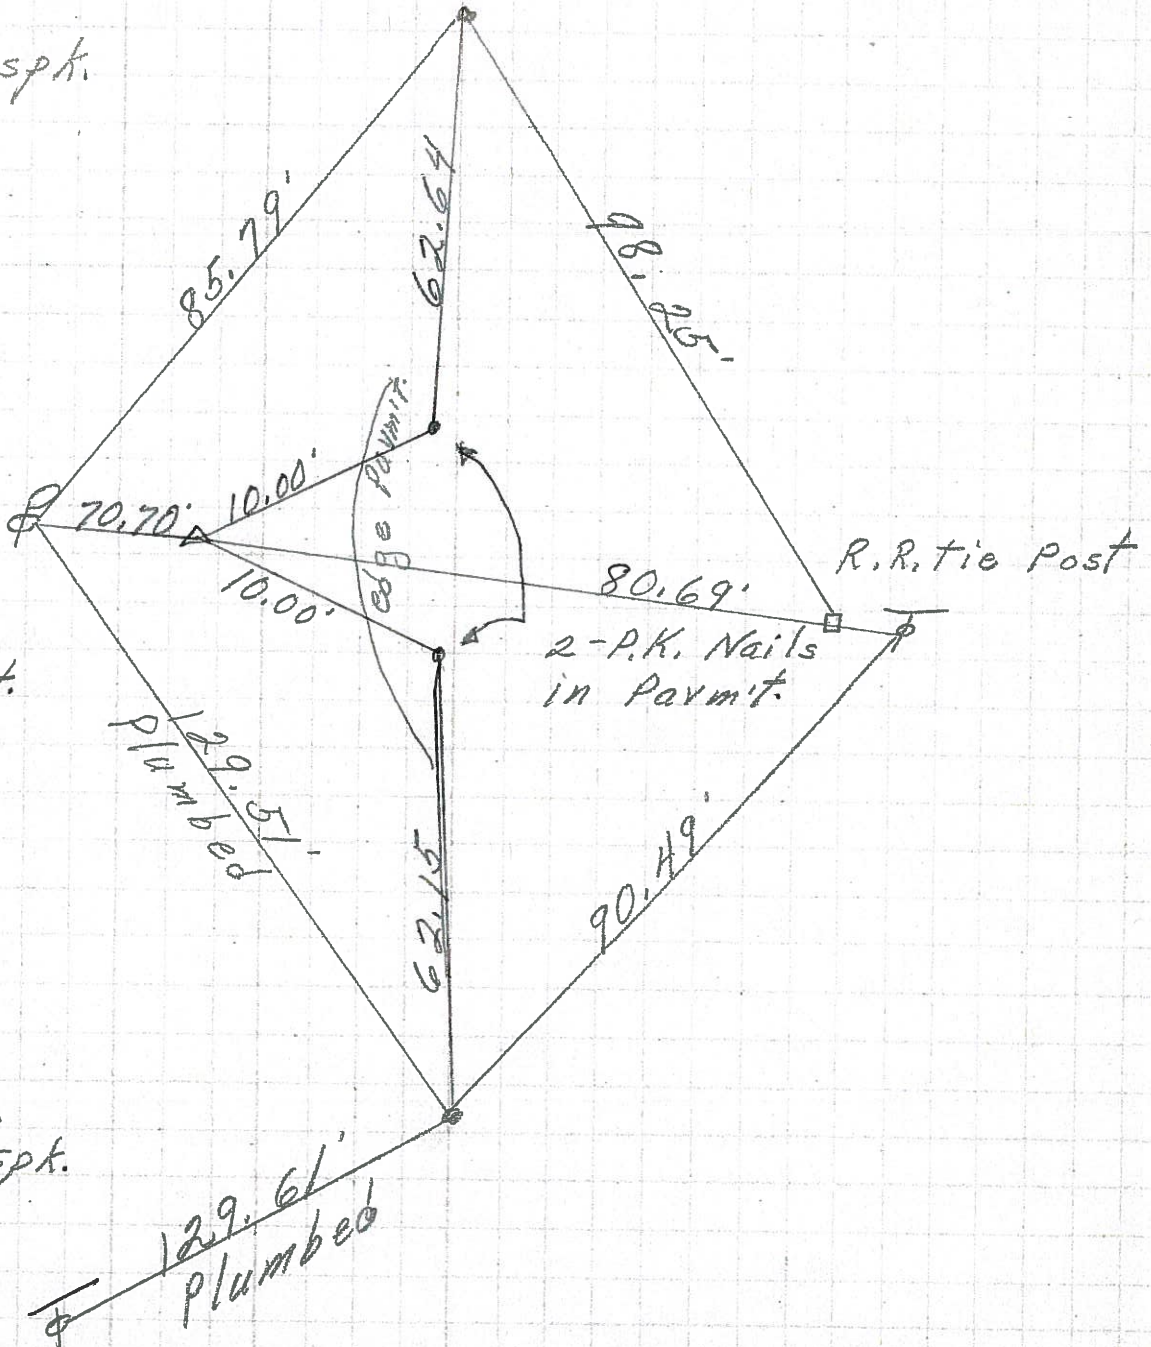 spk.
85.79'
62.64
98.25'
edge Pavmit.
10.00'
70.70'
10.00'
80.69'
R.R. tie Post
2-P.K. Nails
in Pavm't.
t.
129.51'
plumbed
62.15
90.49'
spk.
129.61'
plumbed